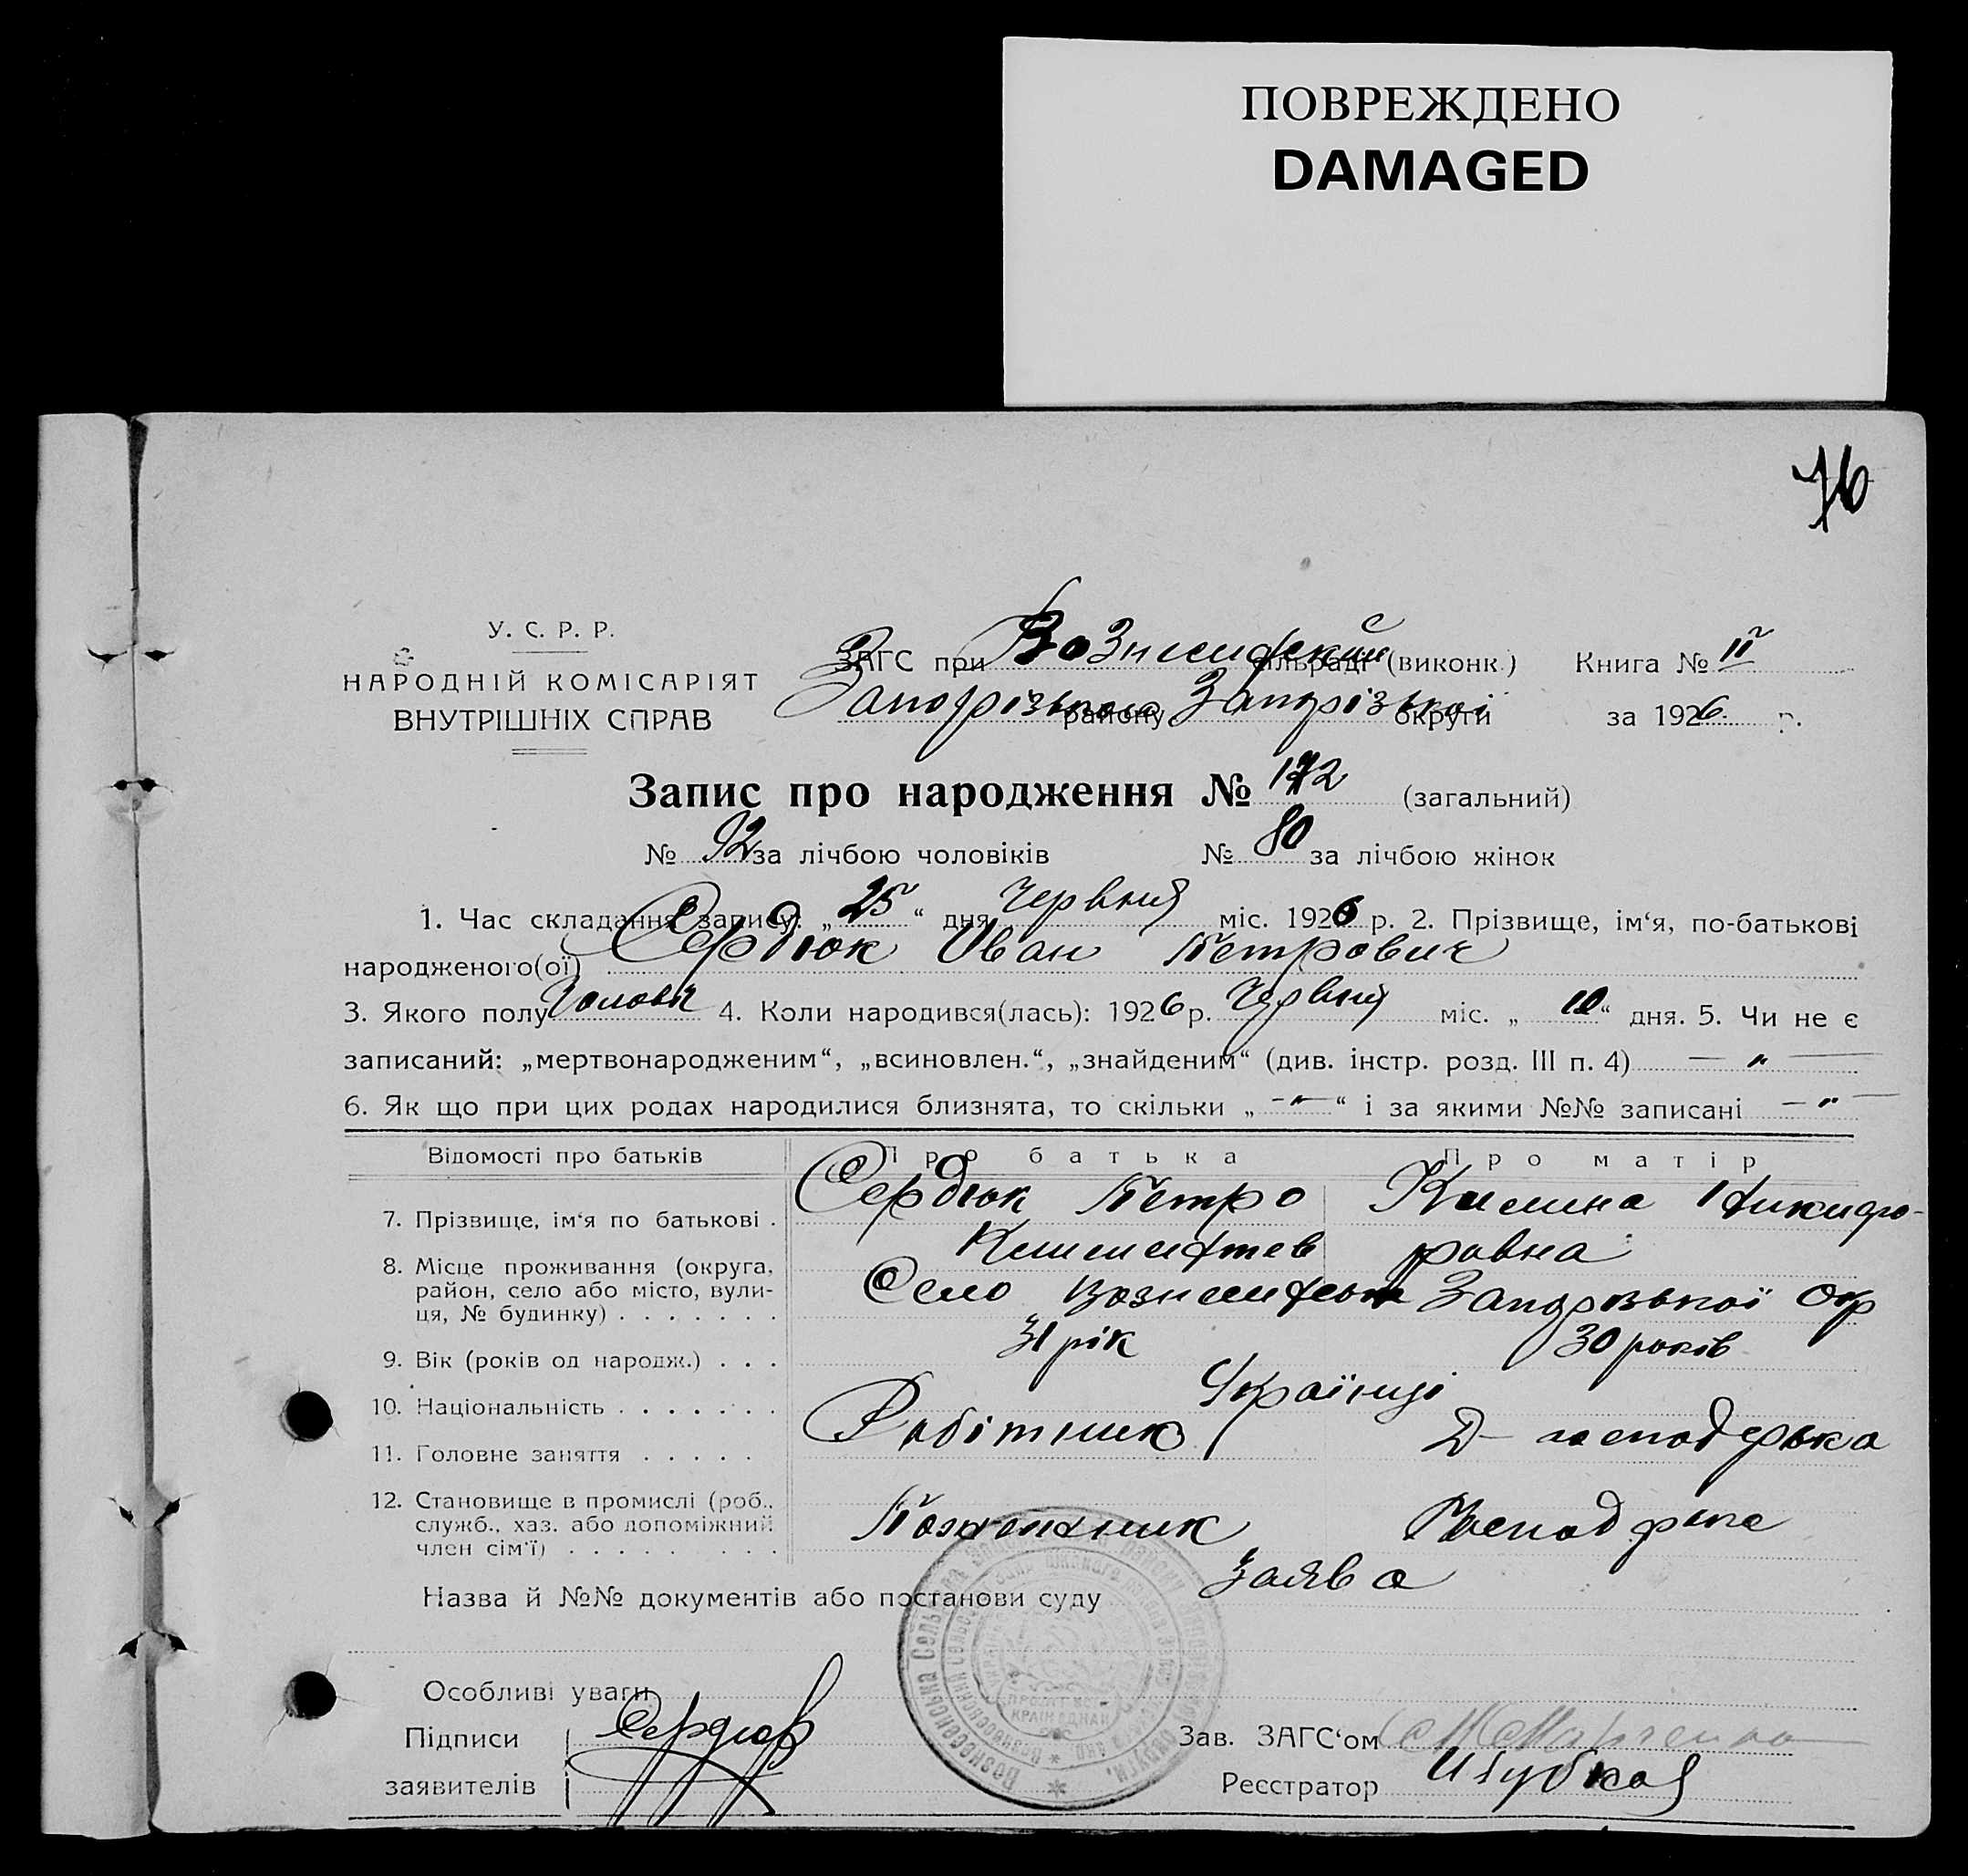 ПОВРЕЖДЕНО
DAMAGED
76
У. С. Р. Р.
НАРОДНІЙ КОМІСАРІЯТ
ВНУТРІШНІХ СПРАВ
ЗАГС при сільраді (виконк.) Книга № II
Запорізького району Запорізької округи за 1926 р.
Запис про народження № 172 (загальний)
№ 92 за лічбою чоловіків № 80 за лічбою жінок
1. Час складання запису: „25“ дня червня міс. 1926 р. 2. Прізвище, ім‘я, по-батькові
народженого(ої) Сердюк Іван Петрович
3. Якого полу Чоловіч 4. Коли народився(лась): 1926 р. Червня міс. „10“ дня. 5. Чи не є
записаний: „мертвонародженим“, „всиновлен.“, „знайденим“ (див. інстр. розд. III п. 4) — „ —
6. Як що при цих родах народилися близнята, то скільки „ -„- “ і за якими №№ записані — „ —
Відомості про батьків Про батька Про матір
7. Прізвище, ім‘я по батькові . Сердюк Петро Килина Никифо-
ровна
8. Місце проживання (округа,
район, село або місто, вули-
ця, № будинку) . . . . . . . Село Запорізької окр
9. Вік (років од народж.) . . . 31 рік 30 років
10. Національність . . . . . . . Українці
11. Головне заняття . . . . . Робітник Д-господарька
12. Становище в промислі (роб.,
служб., хаз. або допоміжний
член сім‘ї) . . . . . . . .
Назва й №№ документів або постанови суду Заява
Особливі уваги
Підписи Сердюк
заявителів
Зав. ЗАГС‘ом
Реєстратор